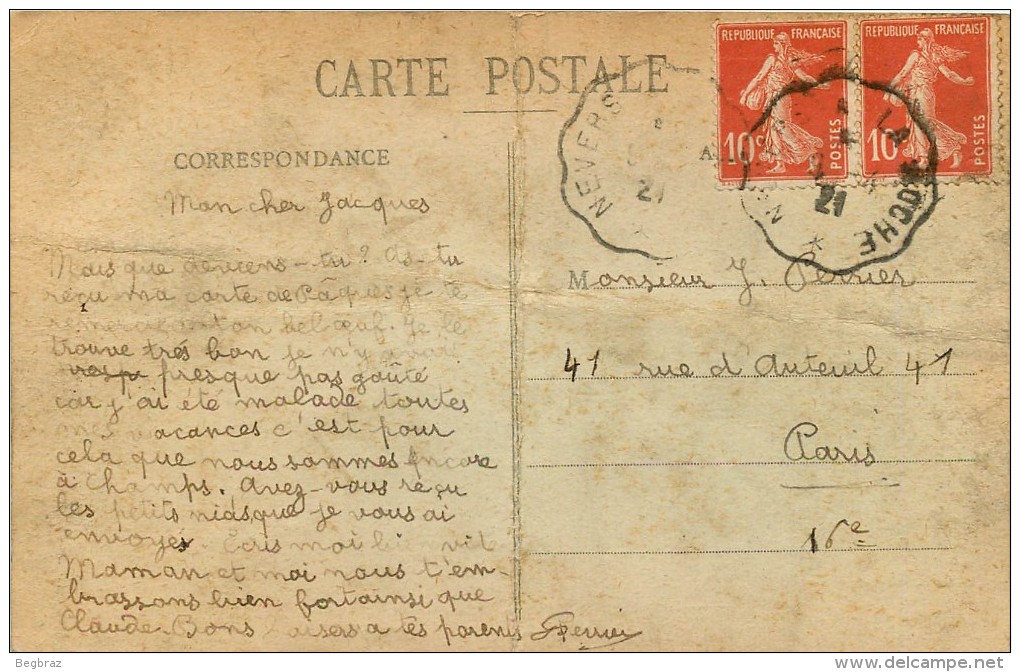 CARTE POSTALE
CORRESPONDANCE
Mon cher Jacques
Mais que deviens-tu? As-tu
reçu ma carte de Pâques je te
remercie de ton bel œuf. Je le
trouve très bon je n'y avait
presque pas goûté
car j'ai été malade toutes
mes vacances c'est pour
cela que nous sommes encore
à Champs. Avez-vous reçu
les petits nids que je vous ai
envoyés. Ecris moi bi vit
Maman et moi nous t'em-
brassons bien fort ainsi que
Claude. Bons baisers a tes parents
REPUBLIQUE FRANÇAISE
10c
POSTES
REPUBLIQUE FRANÇAISE
10
POSTES
NEVERS
21
LA ROCHE
21
Monsieur J. Perrier
41 rue d'Auteuil 41
Paris
16e
Begbraz
delcampe.net